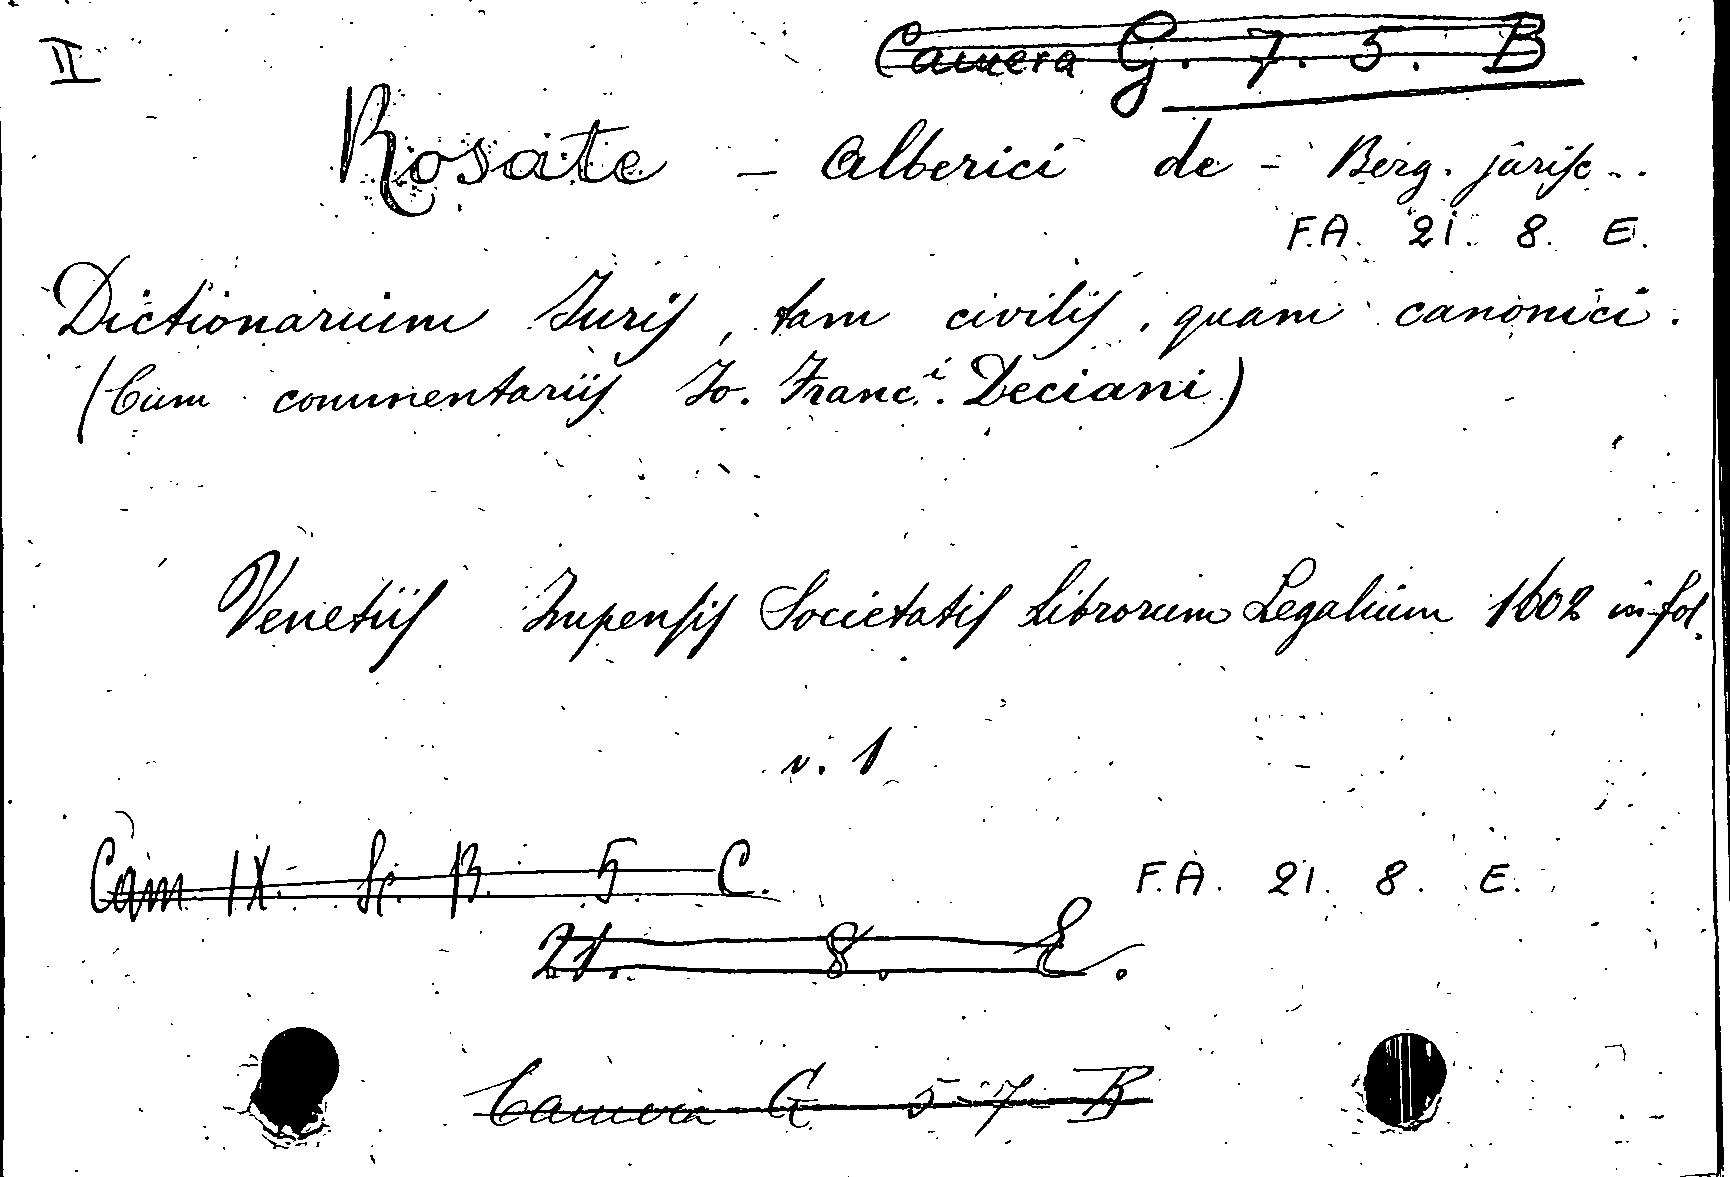 II
Camera G. 7. 5. B
Rosate - Alberici de - Berg. jurisc..
F.A. 21. 8. E.
Dictionarium Juris, tam civilis, quam canonici.
(Cum commentariis Jo. Franc.i Deciani)
Venetiis Impensis Societatis Librorum Legalium 1602 in fol.
v. 1
Cam IX. Sc. B. 5 C.
F.A. 21. 8. E.
21. 8. E.
Camera G 5-7 B